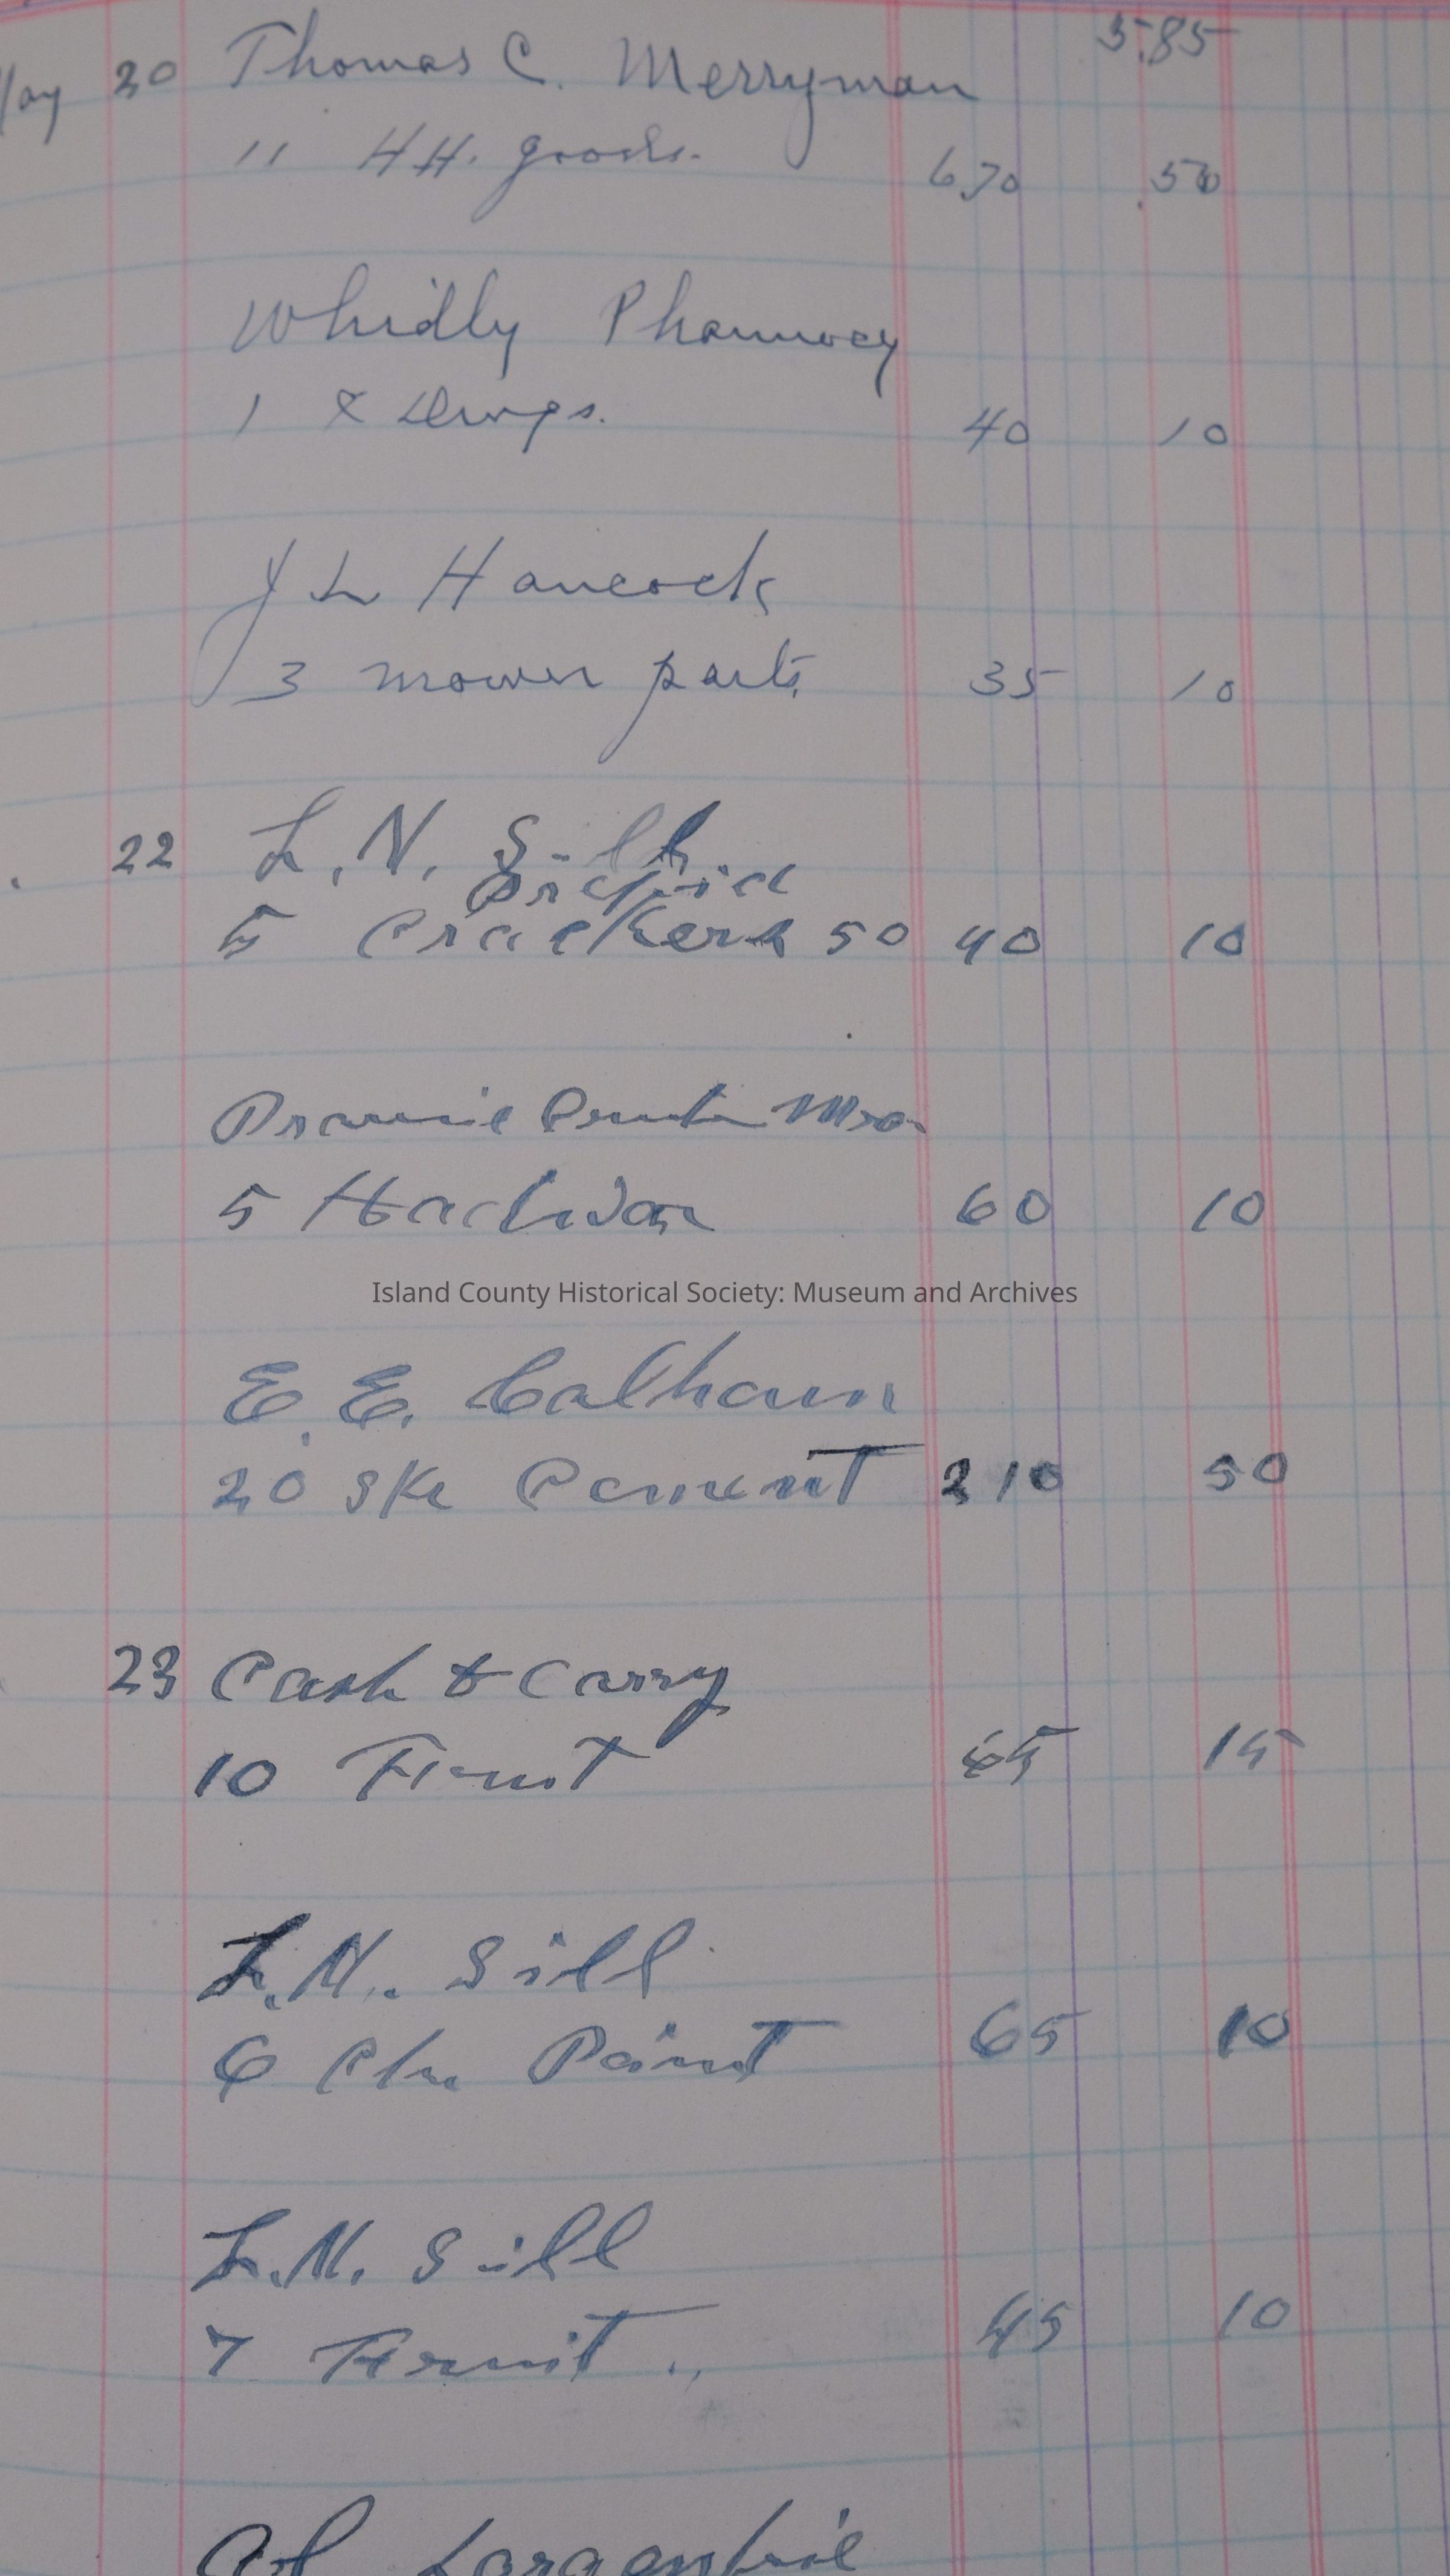 May 20 Thomas C. Merryman 5.85
11 HH. goods. 670 .50
Whidly Pharmacy
1 X Drugs. 40 10
J L Hancock
3 mower parts 35 10
22 L. N. Sill
Prepaid
5 Crackers 50 40 10
Prairie Center
5 60 10
Island County Historical Society: Museum and Archives
E. E. Calhoun
20 sks Cement 210 50
23 Cash & Carry
10 Fruit 65 15
L. N. Sill
6 Paint 65 10
L. N. Sill
7 Fruit 45 10